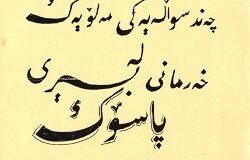 چەند سواڵەیەکی مەلۆیەک
لە
خەرمانی سیری
پاسۆک